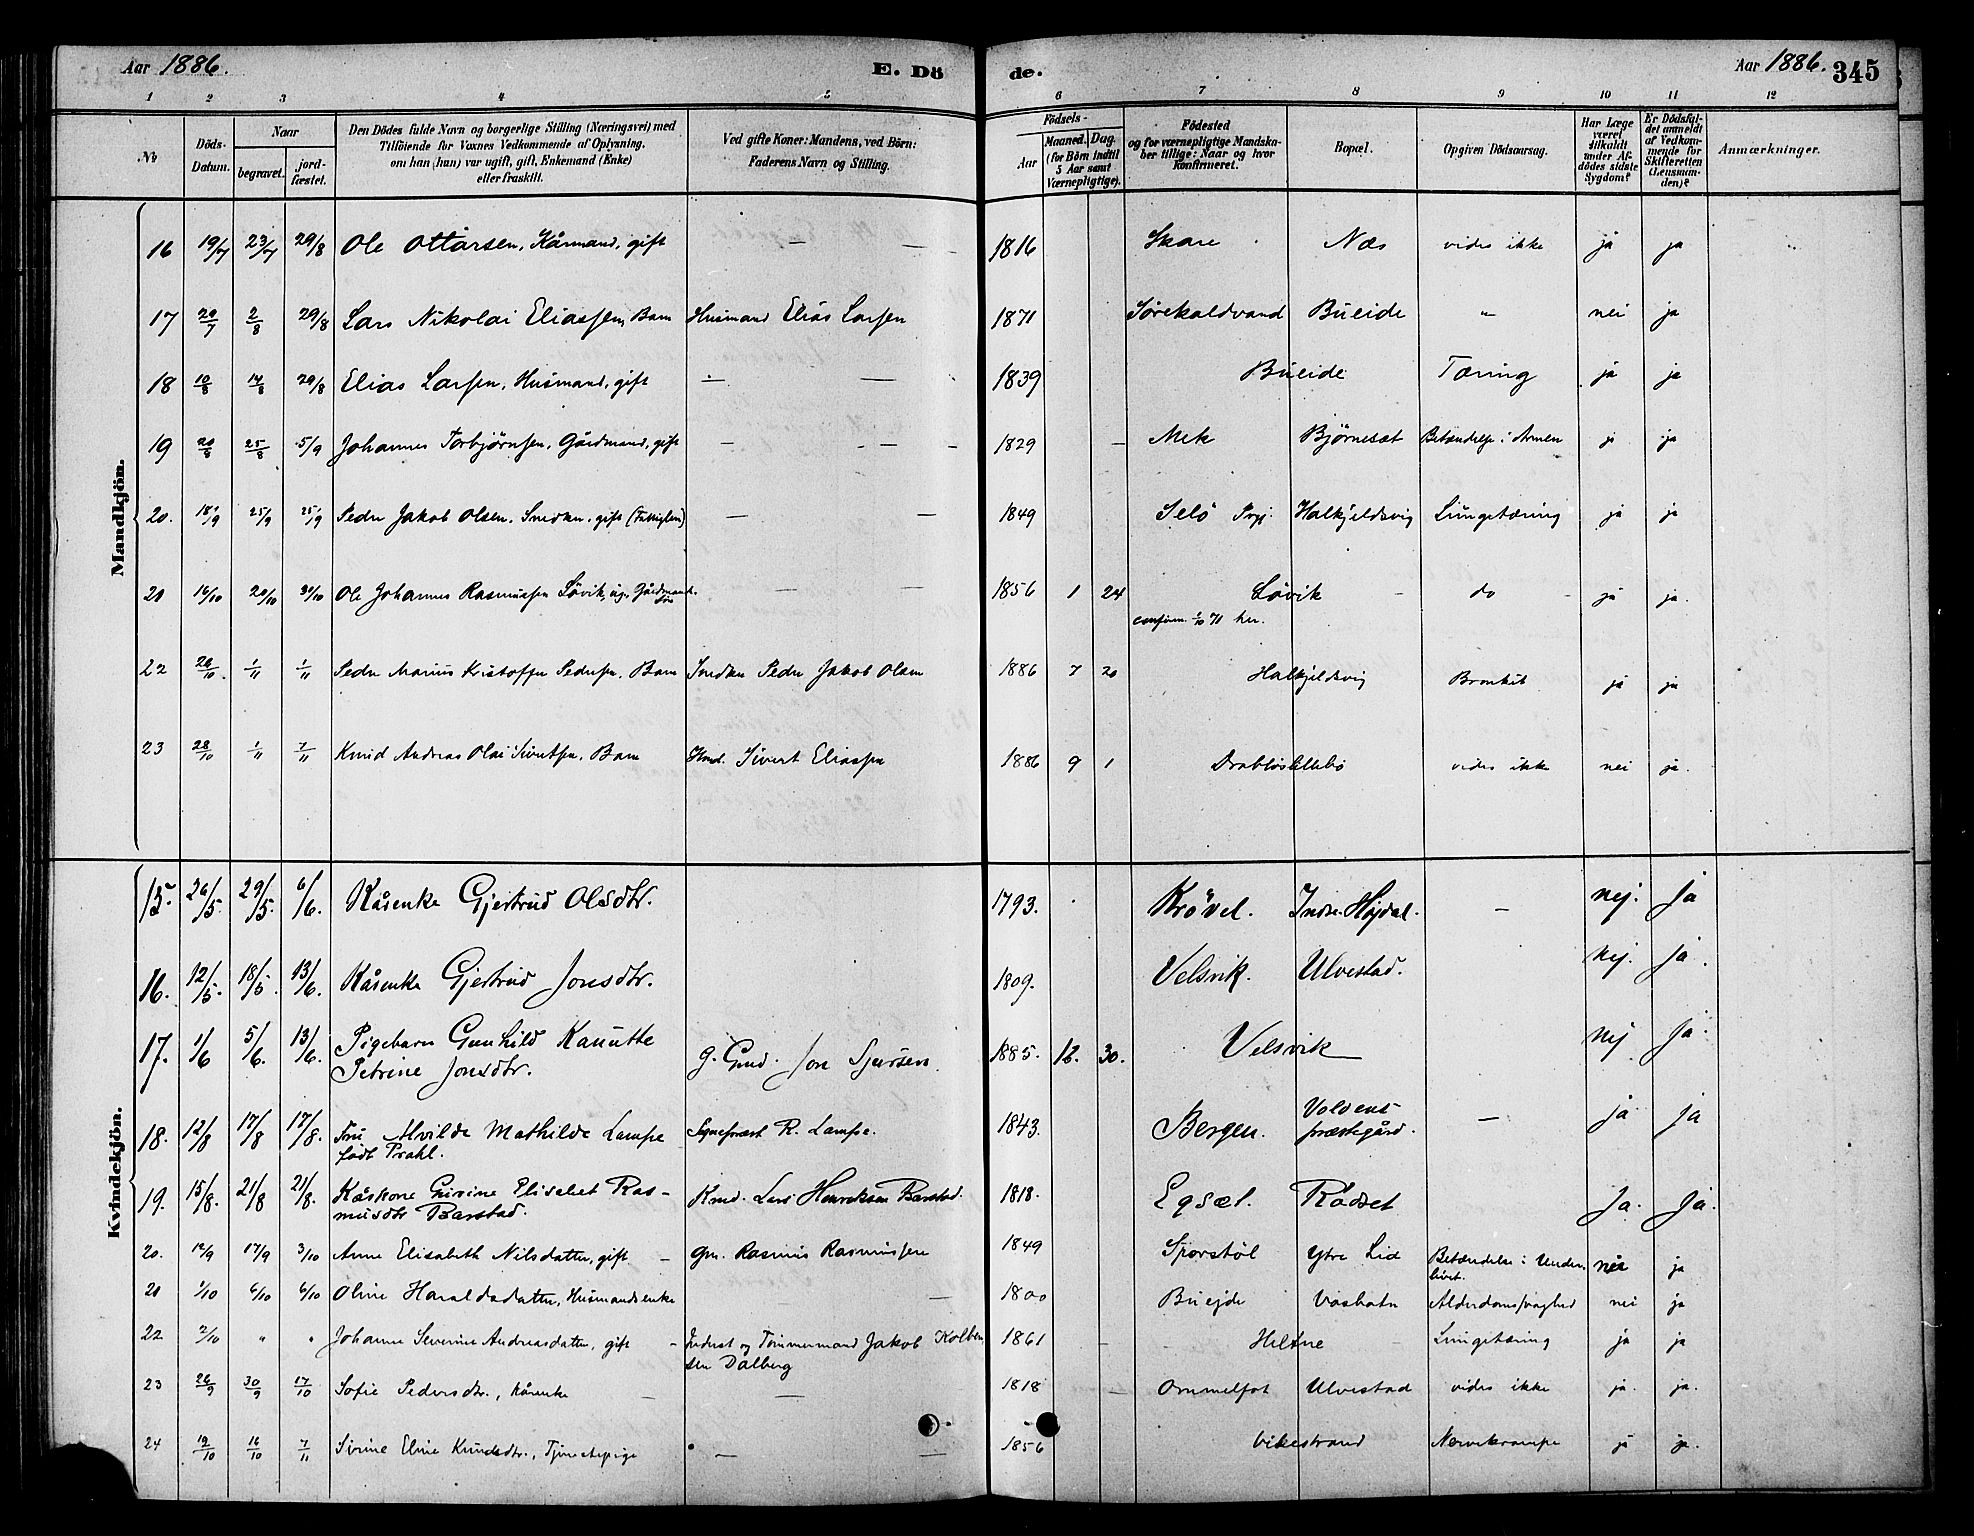 Aar 1886. E. Dö de. Aar 1886. 345
1 2 3 4 5 6 7 8 9 10 11 12
No
Döds-Datum.
Naar
begravet.
jordfæstet.
Den Dödes fulde Navn og borgerlige Stilling (Næringsvei) med
Tilföiende for Voxnes Vedkommende af Oplysning,
om han (hun) var ugift, gift, Enkemand (Enke)
eller fraskilt.
Ved gifte Koner: Mandens, ved Börn:
Faderens Navn og Stilling.
Födsels-
Aar
Maaned. Dag.
(for Börn indtil
5 Aar samt
Værnepligtige).
Födested
og for værnepligtige Mandskaber tillige: Naar og hvor
Konfirmeret.
Bopæl.
Opgiven Dödsaarsag.
Har Læge
været
tilkaldt
under Afdödes sidste
Sygdom?
Er Dödsfaldet anmeldt
af Vedkommende for
Skifteretten
(Lensmanden)?
Anmærkninger.
Mandkjön.
16 19/7 23/7 29/8 Ole Ottarsen, Kårmand, gift — — 1816 Skare Næs vides ikke ja ja
17 20/7 2/8 29/8 Lars Nikolai Eliassen, Barn Husmand Elias Larsen 1871 Sørekaldvand Bueide " nei ja
18 10/8 14/8 29/8 Elias Larsen, Husmand, gift — — 1839 Bueide Tæring ja ja
19 20/8 25/8 5/9 Johannes Torbjørnsen, Gårdmand, gift — — 1829 — Mek Bjørneset Betændelse i Armen ja ja
20. 18/9 25/9 25/9 Peder Jakob Olsen, Snedker, gift (Fattiglem) — — 1849 Selö Prgj. Halkjeldsvig Lungetæring ja ja
21 16/10 20/10 30/10 Ole Johannes Rasmussen Løvik, ug. Gårdmands. — — 1856 1 24 Løvik do ja ja.
confirm. 1/10 71 her.
22 26/10. 1/11 1/11 Peder Marius Kristoffer Pedersen, Barn Snedker Peder Jakob Olsen 1886 7 20 Halkjeldsvig Bronkit ja ja
23 28/10 1/11 7/11 Knud Andreas Olai Sivertsen, Barn Hmd. Sivert Eliassen 1886 9 1 Drabløslillebø vides ikke nei ja.
Kvindekjön.
15. 26/5. 29/5. 6/6. Kårenke Gjertrud Olsdtr. 1793. Krøvel. Indre Høydal. — nej. Ja
16. 12/5. 18/5. 13/6. Kårenke Gjertrud Jonsdtr. 1809. Velsvik. Ulvestad. nej. Ja.
17. 1/6 5/6. 13/6. Pigebarn Gunhild Kanutte
Petrine Jonsdtr. g. Gmd. Jon Sjursen. 1885. 12. 30. Velsvik nej Ja.
18. 12/8 17/8 17/8. Fru Alvilde Mathilde Lampe
født Prahl. Sogneprest R. Lampe. 1843. Bergen. Voldens
præstegård. — ja ja
19. 15/8. 21/8 21/8. Kårkone Sirine Elisabet Rasmusdtr Barstad. Kmd. Lars Henriksen Barstad. 1818. Egset. Rødset Ja. Ja.
20. 12/9 17/9 3/10 Anne Elisabeth Nilsdatter, gift — Gm. Rasmus Rasmussen 1849 Sporstøl Ytre Lid Betændelse i Underlivet. nei ja
21 1/10 6/10 6/10 Oline Haraldsdatter, Husmandsenke — 1800 Bueide Vasbotn Alderdomssvaghed nei ja
22 2/10 " " Johanne Severine Andreasdatter, gift — Inderst og Tømmermand Jakob Kolben-
sen Dalberg 1861 — — Heltne Lungetæring ja ja
23 26/9 30/9 17/10 Sofie Pedersdtr., kårenke — — 1818 — Ommelfot Ulvestad vides ikke ja. ja.
24 12/10 16/10 7/11 Sirine Eline Knudsdtr., Tjenestepige — — 1856 Vikestrand Nervekrampe ja ja.